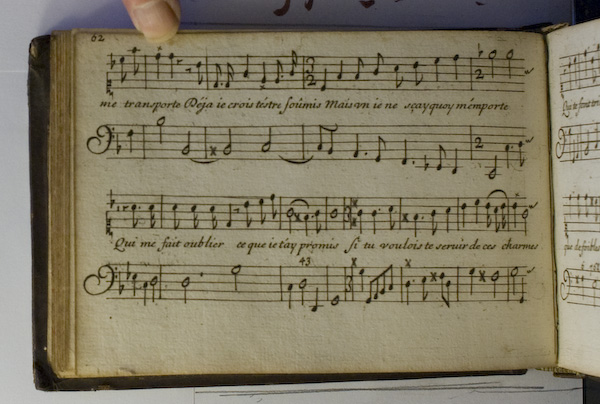 62
me transporte Déja ie crois tèstre soûmis Mais vn ie ne sçay quoy m'emporte
Qui me fait oublier ce que ie t'ay promis si tu voulois te seruir de ces charmes
43